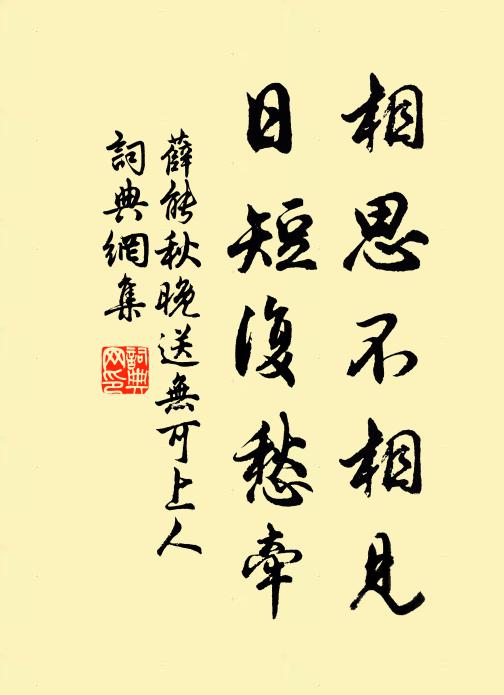 相思不相見
日短復愁牽
薛能秋晚送無可上人
詞典網集
詞典網印